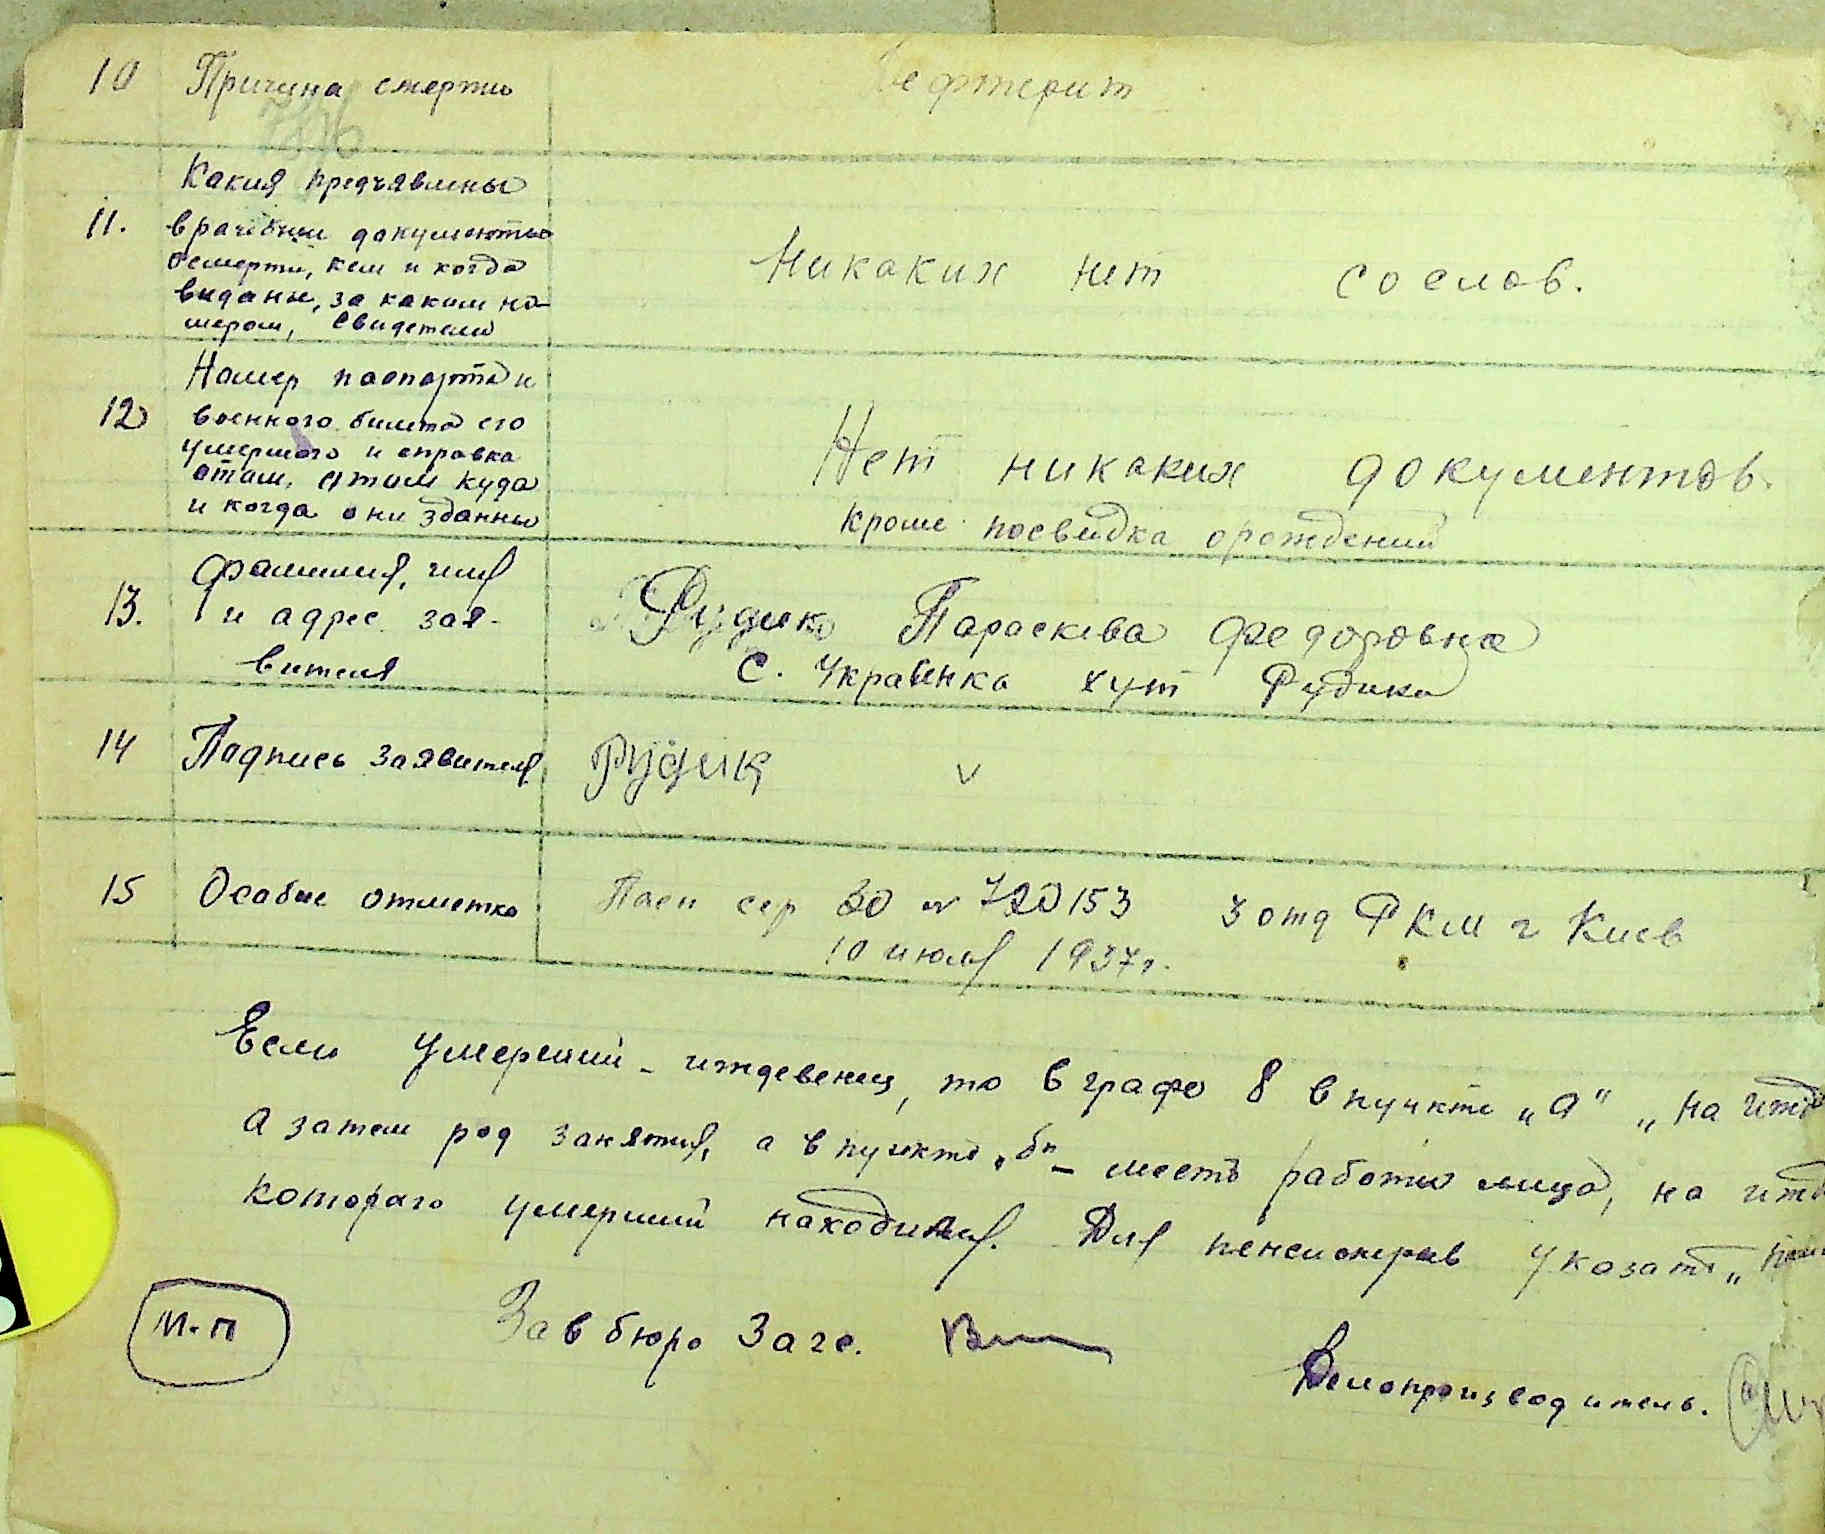 10 Причина смерти
Дефтерит
Какия предъявлены
11. врачебни документы
осмерти, кем и когда
виданы, за каким но-
мером, Свидетели
Никаких нет со слов.
Номер паспорта и
12 военного билета его
умершого и справка
отом, куда
и когда они зданны
Нет никаких документов.
кроме посвидка орождении
Фамилия, имя
13. и адрес зая-
вителя
Рудик Параскева Федоровна
С. Украинка хут Рудики
14 Подпись заявителя Рудик
15 Особые отметки Пасп сер ЗО № 720153 3 отд РКМ г Киев
10 июля 1937г.
Если умерший - иждевенец, то в графе 8 в пункте „а" „на ижд
а затем род занятия, а в пункте „б" - место работы лица, на ижд
котораго умерший находился. Для пенсионеров указать „
М.П Зав бюро Загс.
Делопроизводитель.